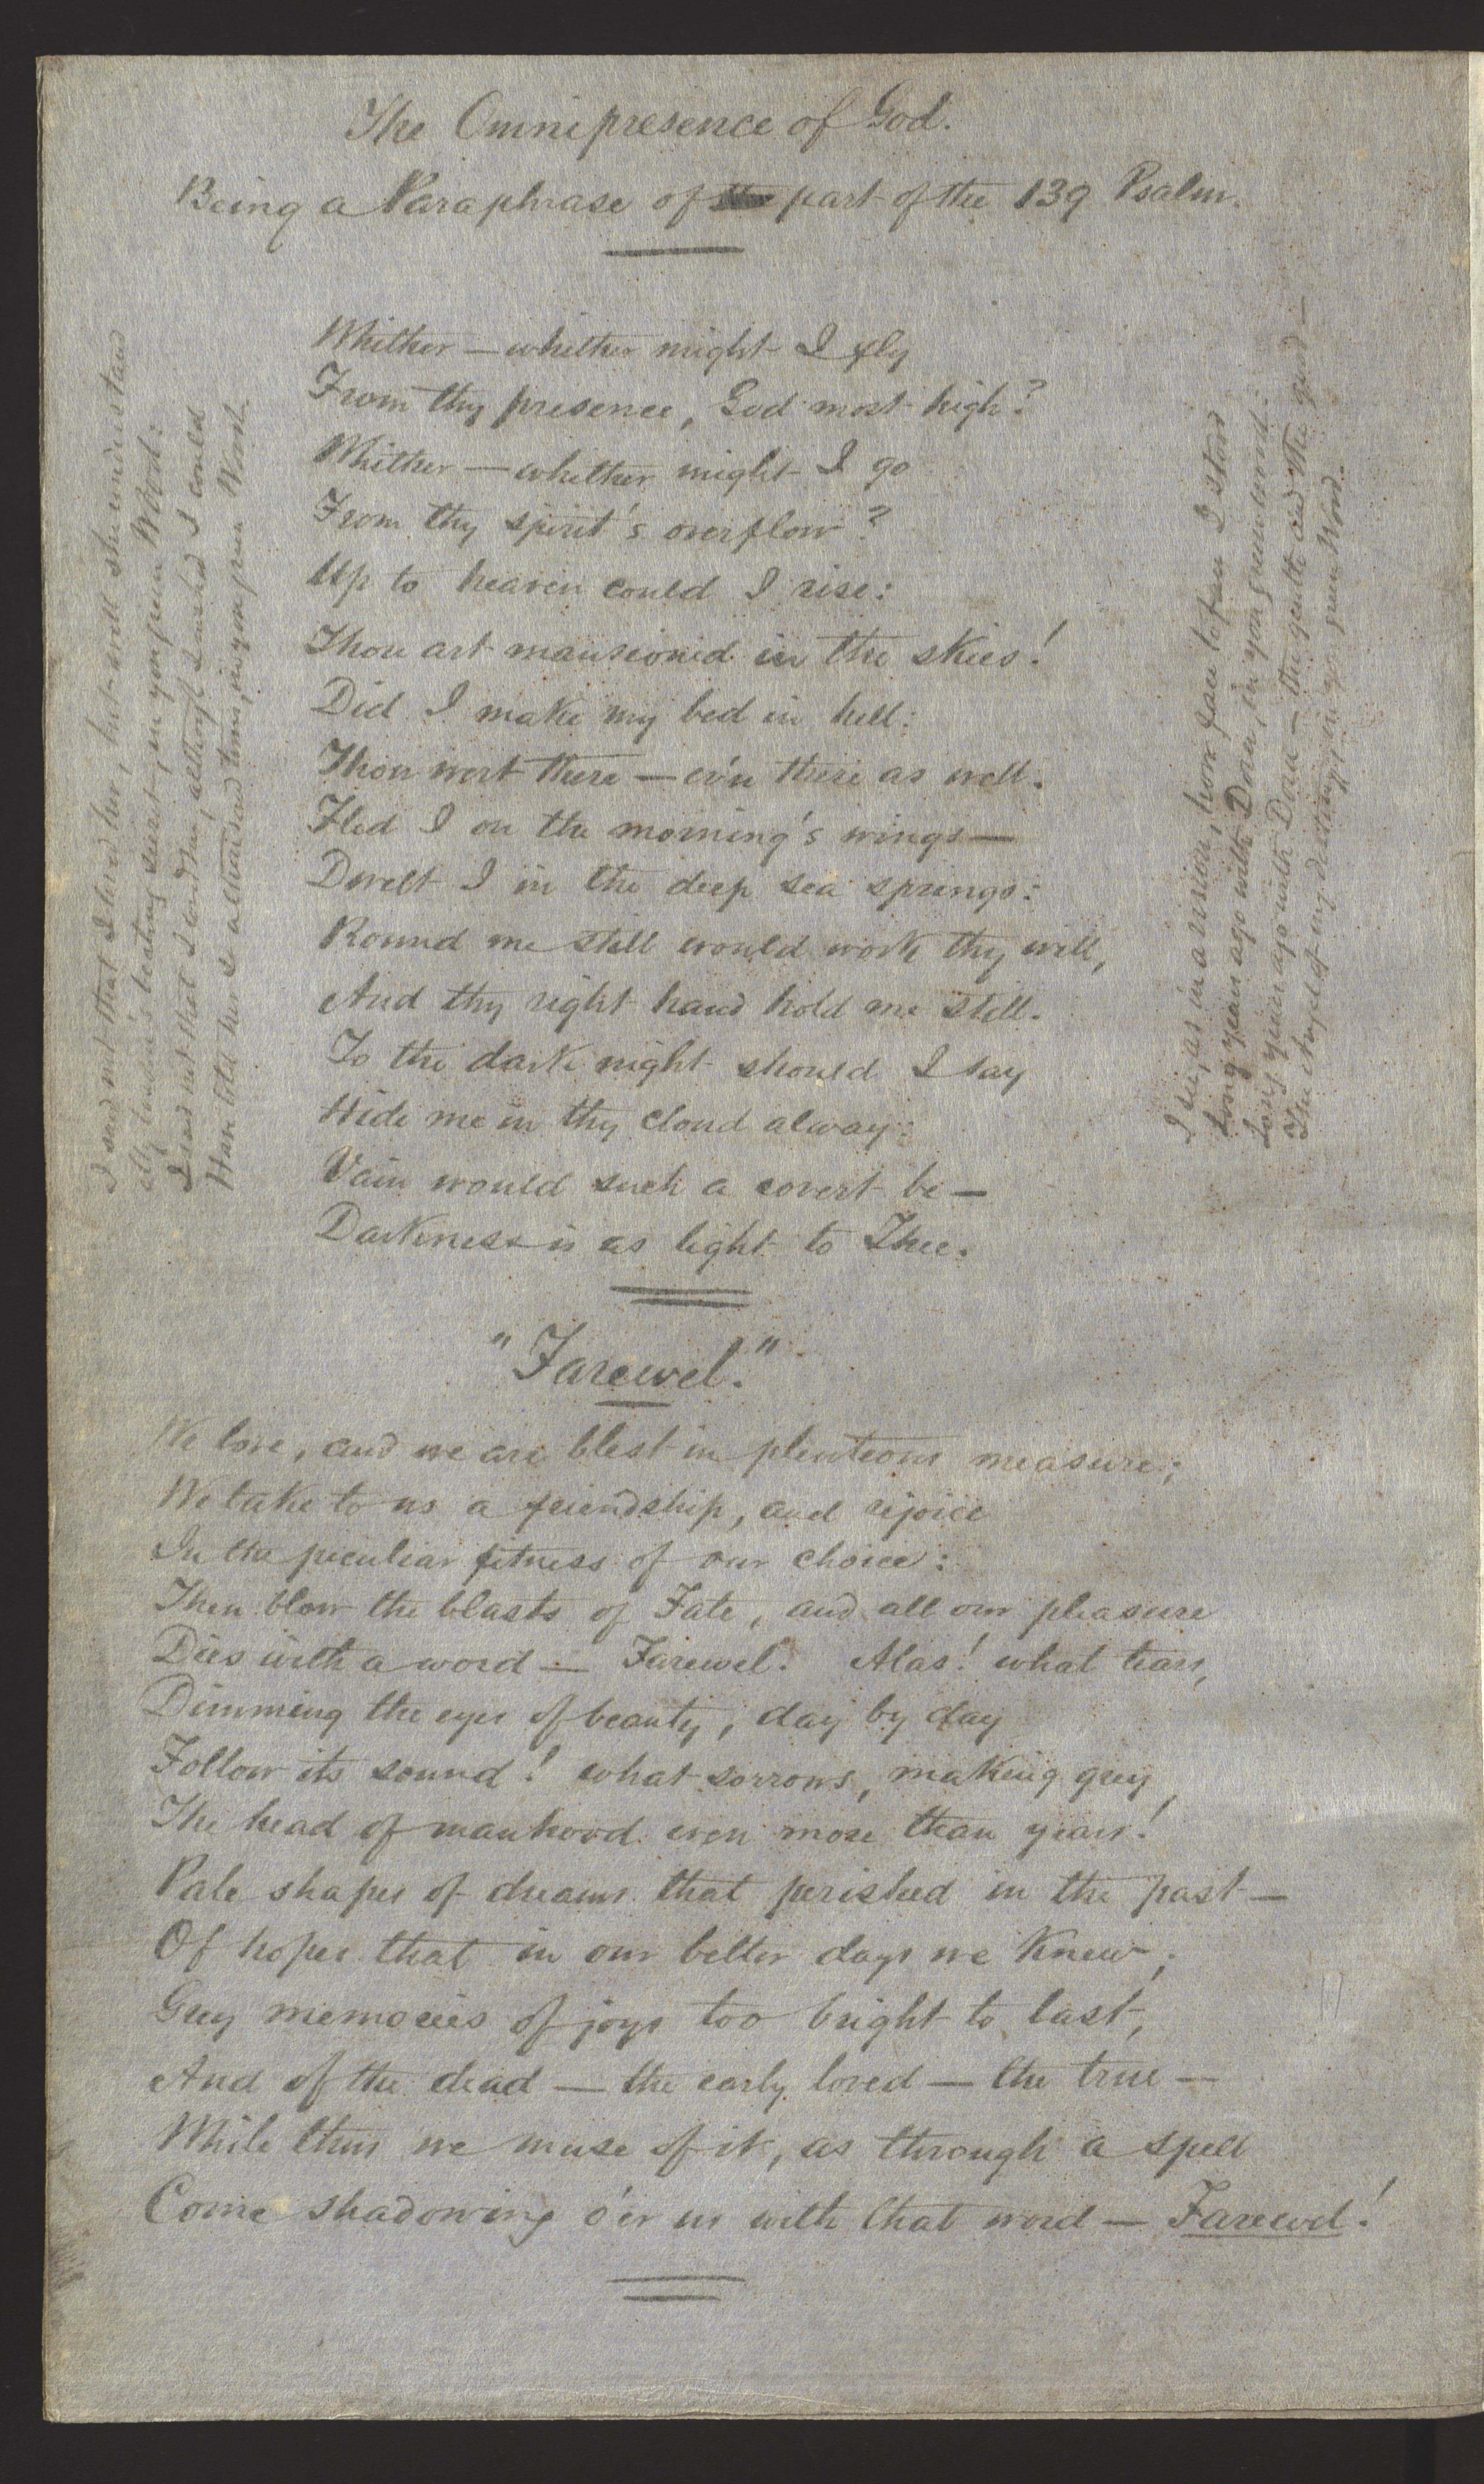 The Omnipresence of God.
Being a Paraphrase of part of the 139 Psalm.
Whither — whither might I fly
From thy presence, God most high?
Whither — whither might I go
From thy spirit's overflow?
Up to heaven could I rise:
Thou art mansioned in the skies!
Did I make my bed in hell:
Thou wert there — ev'n there as well.
Fled I on the morning's wings —
Dwelt I in the deep sea springs:
Round me still would work thy will,
And thy right hand hold me still.
To the dark night should I say
Hide me in thy cloud alway:
Vain would such a covert be —
Darkness is as light to Thee.
"Farewel."
We love, and we are blest in plenteous measure;
We take to us a friendship, and rejoice
In the peculiar fitness of our choice:
Then blow the blasts of Fate, and all our pleasure
Dies with a word — Farewel. Alas! what tears,
Dimming the eyes of beauty, day by day
Follow its sound! what sorrows, making grey
The head of manhood even more than years!
Pale shapes of dreams that perished in the past —
Of hopes that in our better days we knew;
Grey memories of joys too bright to last,
And of the dead — the early loved — the true —
While thus we muse of it, as through a spell
Come shadowing o'er us with that word — Farewel!
I said not that I loved her, but well she understood
My bosom's beating secret, in yon green Wood:
I said not that I loved her, although I wished I could
Have told her so a thousand times, in yon green Wood.
I see, as in a vision, how face to face I stood
Long years ago with Dora, in yon green wood:
Long years ago with Dora — the gentle and the good —
The Angel of my destiny in yon green Wood.